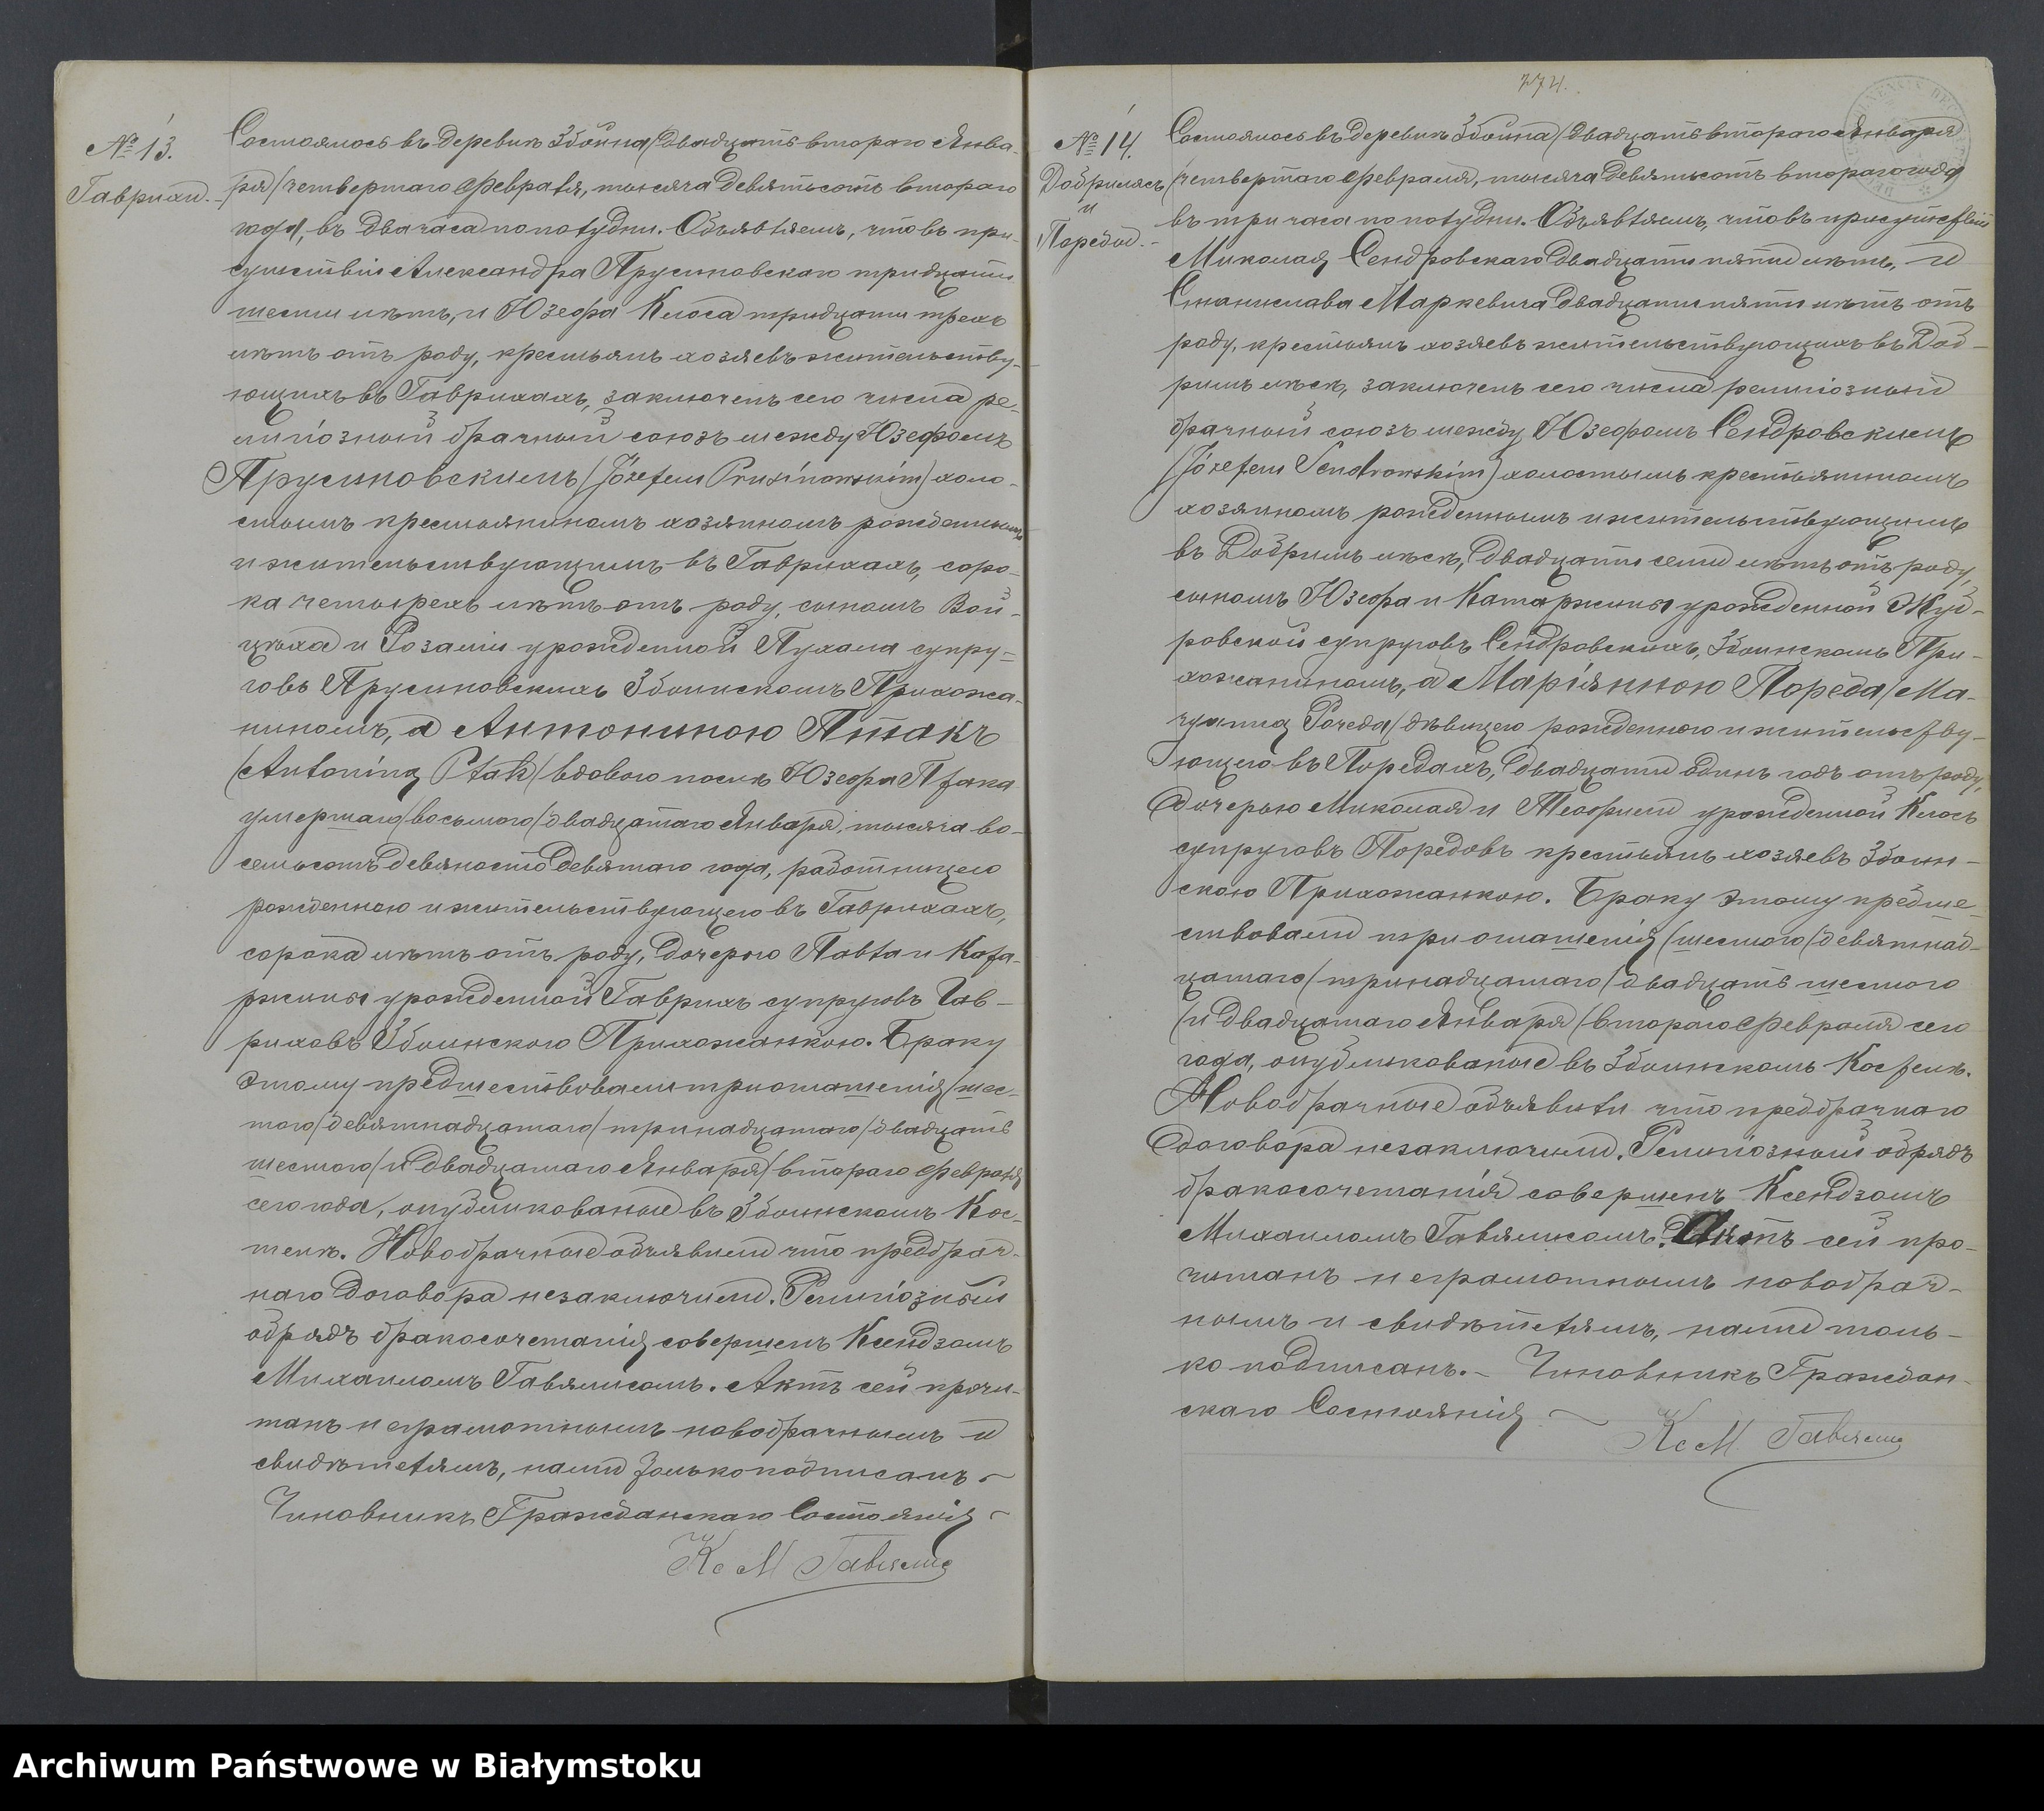 № 13.
Гаврихи. -
Состоялось въ деревнѣ Збойна (двадцать втораго Янва-
ря) четвертаго Февраля, тысяча девятьсотъ втораго
года, въ два часа по полудни. Объявляемъ, что въ при-
сутствіи Александра Прусиновскаго тридцати
шести лѣтъ, и Юзефа Клоса тридцати трехъ
лѣтъ отъ роду, крестьянъ хозяевъ жительству-
ющихъ въ Гаврихахъ, заключенъ сего числа ре-
лигіозный брачный союзъ между Юзефомъ
Прусиновскимъ (Józefem Prusinowskim) холо-
стымъ крестьяниномъ хозяиномъ рожденнымъ
и жительствующимъ въ Гаврихахъ, соро-
ка четырехъ лѣтъ отъ роду, сыномъ Вой-
цѣха и Розаліи урожденной Пухала супру-
говъ Прусиновскихъ Збоинскомъ Прихожа-
ниномъ, а Антониною Птакъ
(Antoniną Ptak) вдовою послѣ Юзефа Птака
умершаго (восьмого) двадцатаго Января, тысяча во-
семьсотъ девяносто девятаго года, работницею
рожденною и жительствующею въ Гаврихахъ,
сорока лѣтъ отъ роду, дочерью Павла иКата-
ржины урожденной Гаврихъ супруговъ Гав-
риховъ Збоинскою Прихожанкою. Браку
этому предшествовали три оглашенія (шес-
того) девятнадцатаго (тринадцатаго) двадцать
шестого (и двадцатаго Января) втораго Февраля
сего года, опубликованые въ Збоинскомъ Кос-
телѣ. Новобрачные объявили что предбрач-
наго договора незаключили. Религіозный
обрядъ бракосочетанія совершенъ Ксендзомъ
Михаиломъ Гавялисомъ. Актъ сей прочи-
танъ неграмотнымъ новобрачнымъ и
свидѣтелямъ, нами только подписанъ. -
Чиновникъ Гражданскаго Состоянія -
Кс М Гавялис
274.
№ 14.
Добрилясъ
и
Пореды. -
Состоялось въ деревнѣ Збойна (двадцать втораго Января)
четвертаго Февраля, тысяча девятьсотъ втораго года
въ три часа по полудни. Объявляемъ, что въ присутствіи
Миколая Сендровскаго двадцати пяти лѣтъ, и
Станислава Маркевича двадцати пяти лѣтъ отъ
роду, крестьянъ хозяевъ жительствующихъ въ Доб-
рымъ лѣсѣ, заключенъ сего числа религіозный
брачный союзъ между Юзефомъ Сендровскимъ
(Józefem Sendrowskim) холостымъ крестьяниномъ
хозяиномъ рожденнымъ и жительствующимъ
въ Добрымъ лѣсѣ, двадцати семи лѣтъ отъ роду,
сыномъ Юзефа и Катаржины урожденной
ровской супруговъ Сендровскихъ, Збоинскомъ При-
хожаниномъ, а Маріянною Пореда (Ma-
ryanną Poreda) дѣвицею рожденною и жительству-
ющею въ Поредахъ, двадцати одинъ годъ отъ роду,
дочерью Миколая и Теофили урожденной Клосъ
супруговъ Поредовъ крестьянъ хозяевъ Збоин-
скою Прихожанкою. Браку этому предше-
ствовали три оглашенія (шестого) девятнад-
цатаго (тринадцатаго) двадцать шестого
(и двадцатаго Января) втораго Февраля сего
года, опубликованые въ Збоинскомъ Костелѣ.
Новобрачные объявили что предбрачнаго
договора незаключили. Религіозный обрядъ
бракосочетанія совершенъ Ксендзомъ
Михаиломъ Гавялисомъ. Актъ сей про-
читанъ неграмотнымъ новобрач-
нымъ и свидѣтелямъ, нами толь-
ко подписанъ. - Чиновникъ Граждан-
скаго Состоянія -
Кс М Гавялис
Archiwum Państwowe w Białymstoku